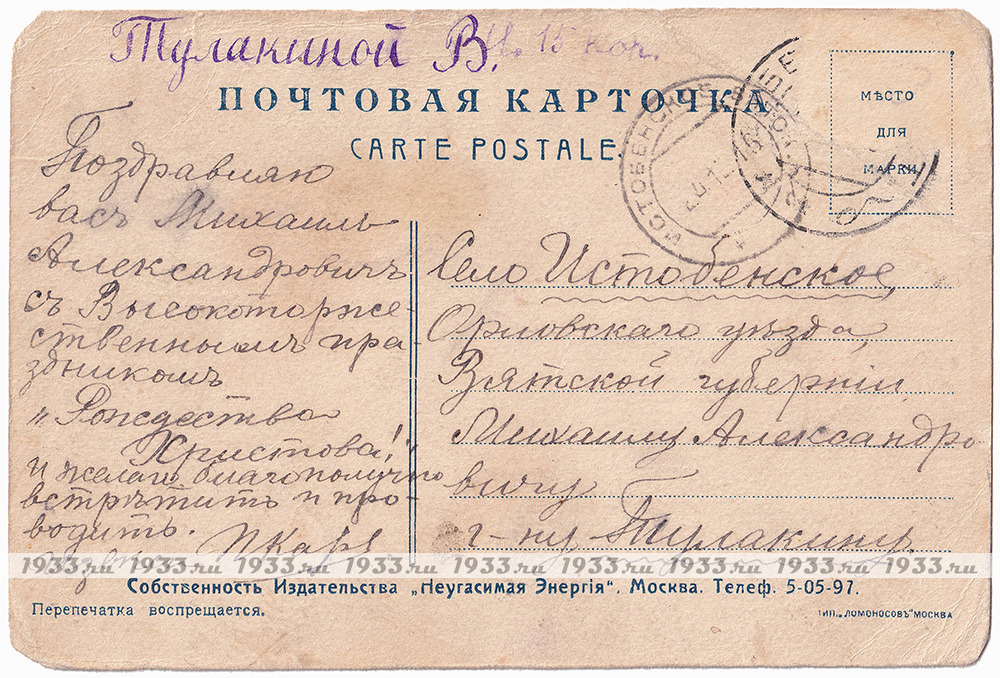 Тулакиной В.
15 коп.
ПОЧТОВАЯ КАРТОЧКА
CARTE POSTALE.
МѢСТО
ДЛЯ
МАРКИ
ИСТОБЕНСКОЕ
Поздравляю
васъ Михаилъ
Александровичъ
съ Высокоторже-
ственнымъ пра-
здникомъ
„Рождества
Христова!"
и желаю благополучно
встрѣтить и про-
водить.
Село Истобенское,
Орловскаго уѣзда,
Вятской губерніи,
Михаилу Александро
вичу
г-ну Тулакину.
1933.ru 1933.ru 1933.ru 1933.ru 1933.ru 1933.ru 1933.ru
Собственность Издательства „Неугасимая Энергія". Москва. Телеф. 5-05-97.
Перепечатка воспрещается.
ТИП. „ЛОМОНОСОВЪ" МОСКВА